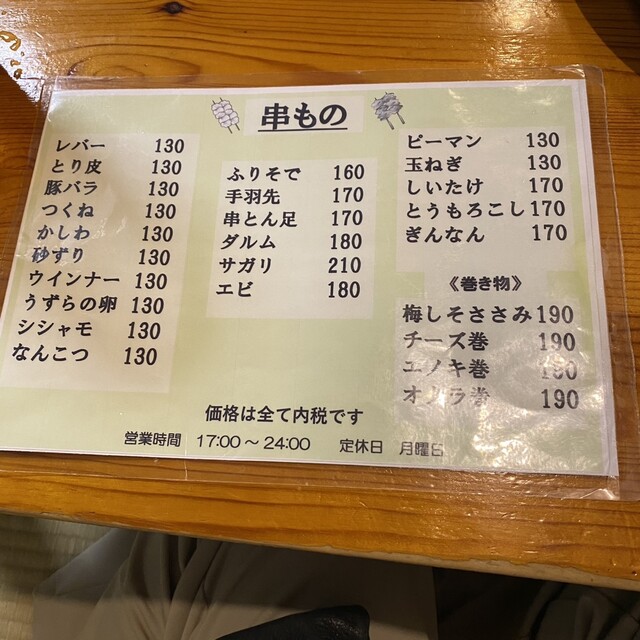 串もの
レバー 130
とり皮 130
豚バラ 130
つくね 130
かしわ 130
砂ずり 130
ウインナー 130
うずらの卵 130
シシャモ 130
なんこつ 130
ふりそで 160
手羽先 170
串とん足 170
ダルム 180
サガリ 210
エビ 180
ピーマン 130
玉ねぎ 130
しいたけ 170
とうもろこし 170
ぎんなん 170
《巻き物》
梅しそささみ 190
チーズ巻 190
エノキ巻 190
オクラ巻 190
価格は全て内税です
営業時間 17:00～24:00 定休日 月曜日